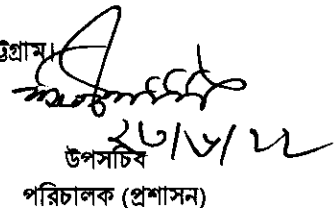 ট্টগ্রাম।
২৩/৬/২২
উপসচিব
পরিচালক (প্রশাসন)